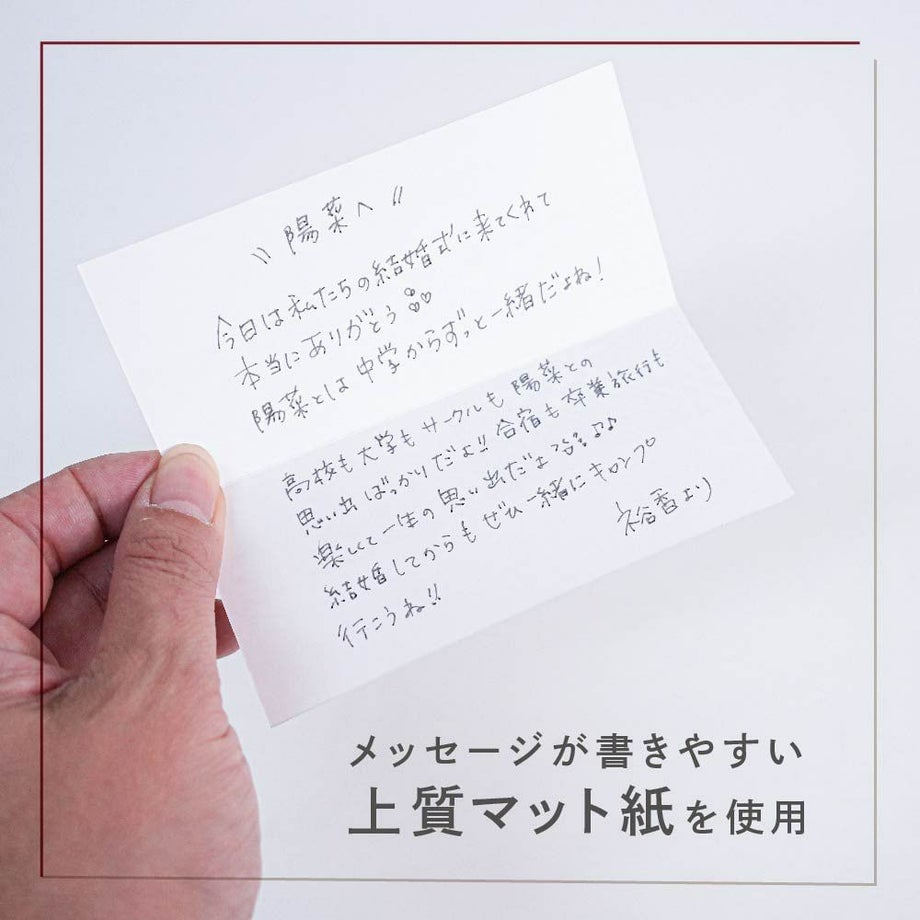 〃陽菜へ〃
今日は私たちの結婚式に来てくれて
本当にありがとう
陽菜とは中学からずっと一緒だよね!
高校も大学もサークルも陽菜との
思い出ばっかりだよ!!合宿も卒業旅行も
楽しくて一生の思い出だよ
結婚してからもぜひ一緒にキャンプ
行こうね!!
裕香より
メッセージが書きやすい
上質マット紙を使用